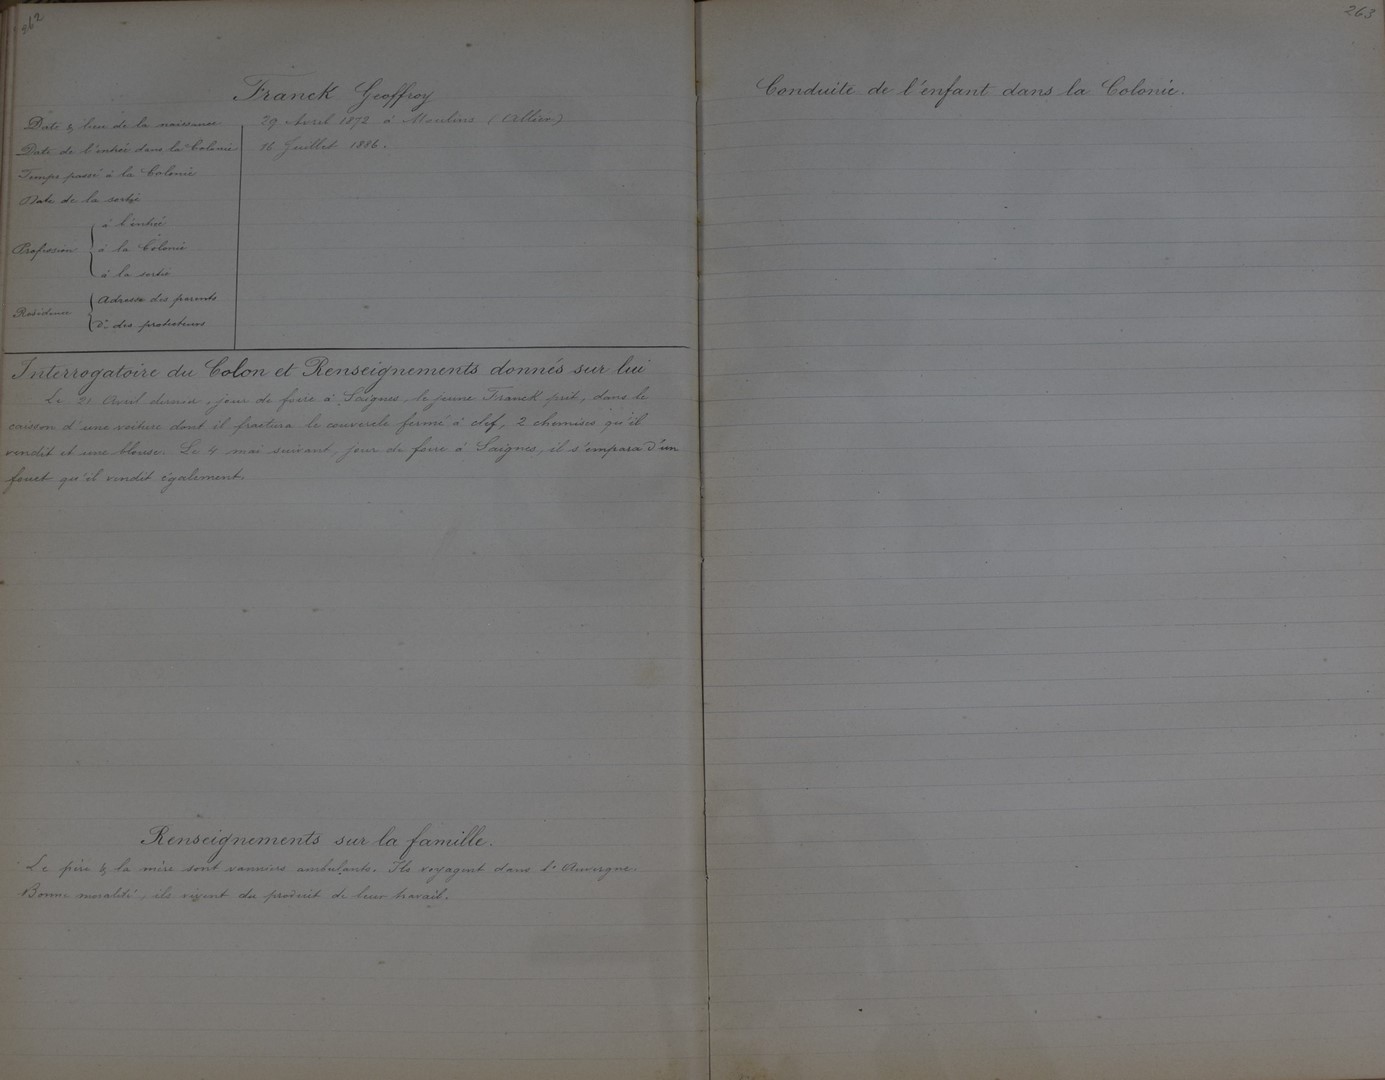 262
Franck Geoffroy
Date & lieu de la naissance 29 Avril 1872 à Moulins (Allier)
Date de l'entrée dans la Colonie 16 Juillet 1886.
Temps passé à la Colonie
Date de la sortie
Profession
à l'entrée
à la Colonie
à la sortie
Résidence
Adresse des parents
d° des protecteurs
Interrogatoire du Colon et Renseignements donnés sur lui
Le 21 Avril dernier, jour de foire à Saignes, le jeune Franck prit, dans le
caisson d'une voiture dont il fractura le couvercle fermé à clef, 2 chemises qu'il
vendit et une blouse. Le 4 mai suivant, jour de foire à Saignes, il s'empara d'un
fouet qu'il vendit également.
Renseignements sur la famille.
Le père & la mère sont vanniers ambulants. Ils voyagent dans l'Auvergne.
Bonne moralité, ils vivent du produit de leur travail.
263
Conduite de l'enfant dans la Colonie.